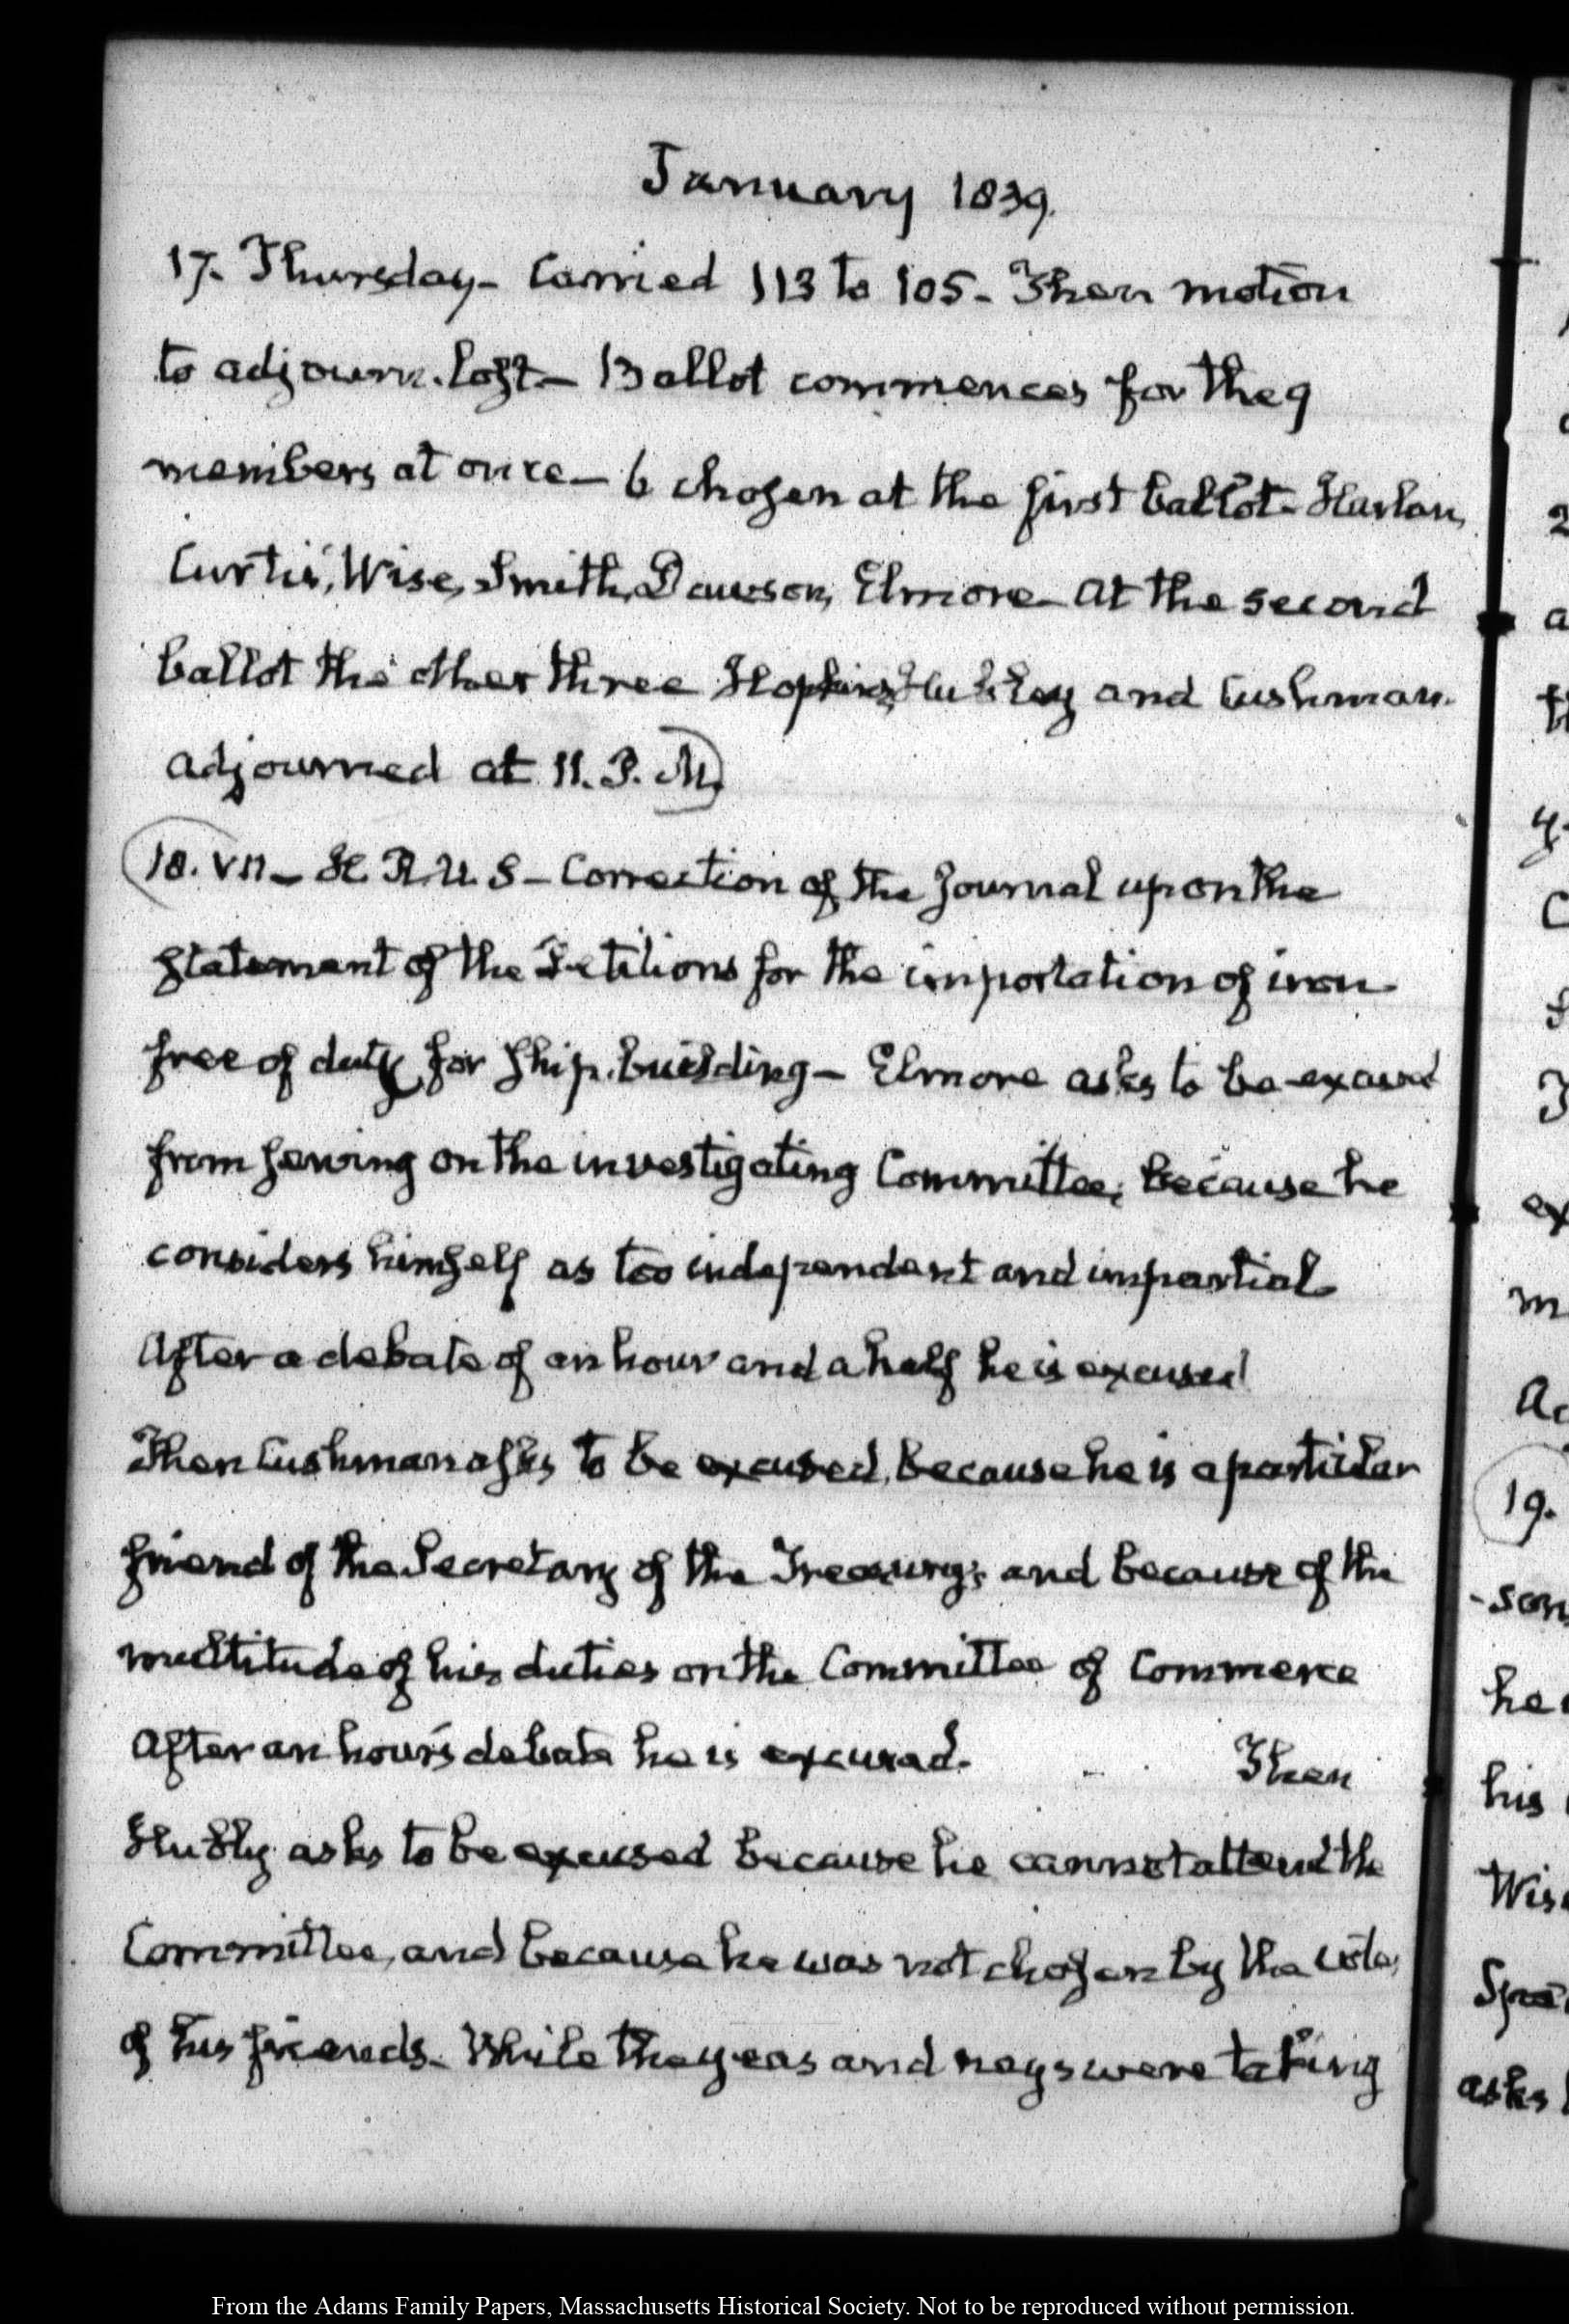 January 1839.
17. Thursday- Carried 113 to 105- Then motion
to adjourn. lost- Ballot commences for the 9
members at once- 6 chosen at the first ballot- Harlan,
Curtis, Wise, Smith, Dawson, Elmore- At the second
ballot the other three Hopkins, Hubley and Cushman.
adjourned at 11. P. M.
18. VII- H. R. U. S- Correction of the Journal upon the
statement of the Petitions for the importation of iron
free of duty for ship-building- Elmore asks to be excused
from serving on the investigating Committee; because he
considers himself as too independent and impartial
After a debate of an hour and a half he is excused
Then Cushman asks to be excused, because he is a particular
friend of the Secretary of the Treasury; and because of the
multitude of his duties on the Committee of Commerce
After an hour's debate he is excused. Then
Hubley asks to be excused because he cannot attend the
Committee, and because he was not chosen by the votes
of his friends- While the yeas and nays were taking
19.
From the Adams Family Papers, Massachusetts Historical Society. Not to be reproduced without permission.